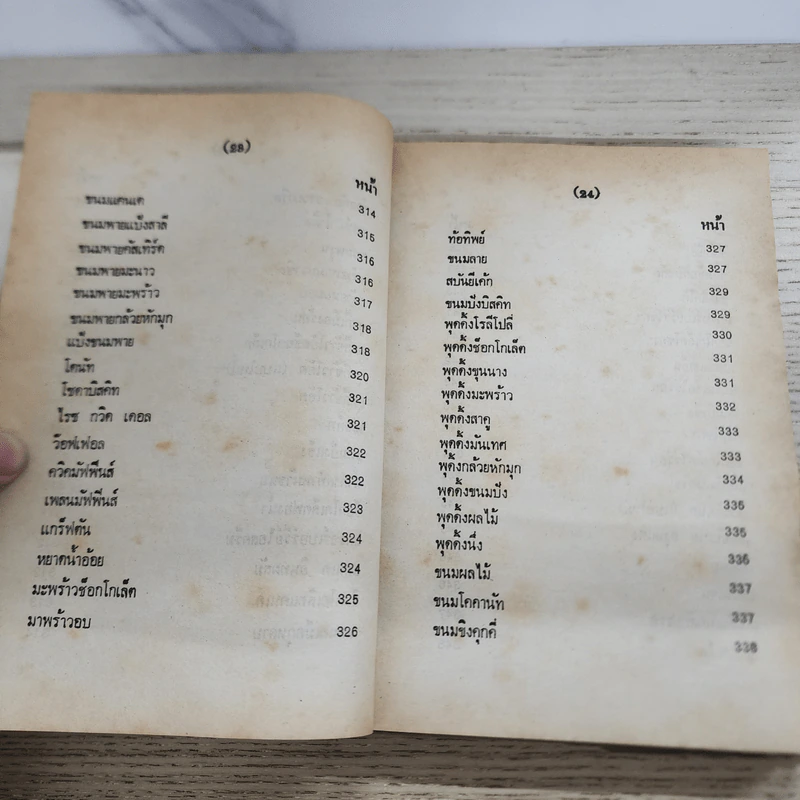 (23)
หน้า
ขนมแคนเค 314
ขนมพายแป้งสาลี 315
ขนมพายคัสเทิร์ด 316
ขนมพายมะนาว 316
ขนมพายมะพร้าว 317
ขนมพายกล้วยหักมุก 318
แป้งขนมพาย 318
โดนัท 320
โซดาบิสคิท 321
โรซ กวิต เดอล 321
ว๊อฟเฟอล 322
ควิคมัฟฟีนส์ 322
เพลนมัฟฟีนส์ 323
แกร็ฟตัน 324
หยาดน้ำอ้อย 324
มะพร้าวช็อกโกเล็ต 325
มาพร้าวอบ 326
(24)
หน้า
ท้อทิพย์ 327
ขนมลาย 327
สบันยีเค้ก 329
ขนมปังบิสคิท 329
พุดดิ้งโรลีโปลี่ 330
พุดดิ้งช็อกโกเล็ต 331
พุดดิ้งขุนนาง 331
พุดดิ้งมะพร้าว 332
พุดดิ้งสาคู 333
พุดดิ้งมันเทศ 333
พุดดิ้งกล้วยหักมุก 334
พุดดิ้งขนมปัง 335
พุดดิ้งผลไม้ 335
พุดดิ้งนึ่ง 336
ขนมผลไม้ 337
ขนมโคคานัท 337
ขนมขิงคุกคี่ 338